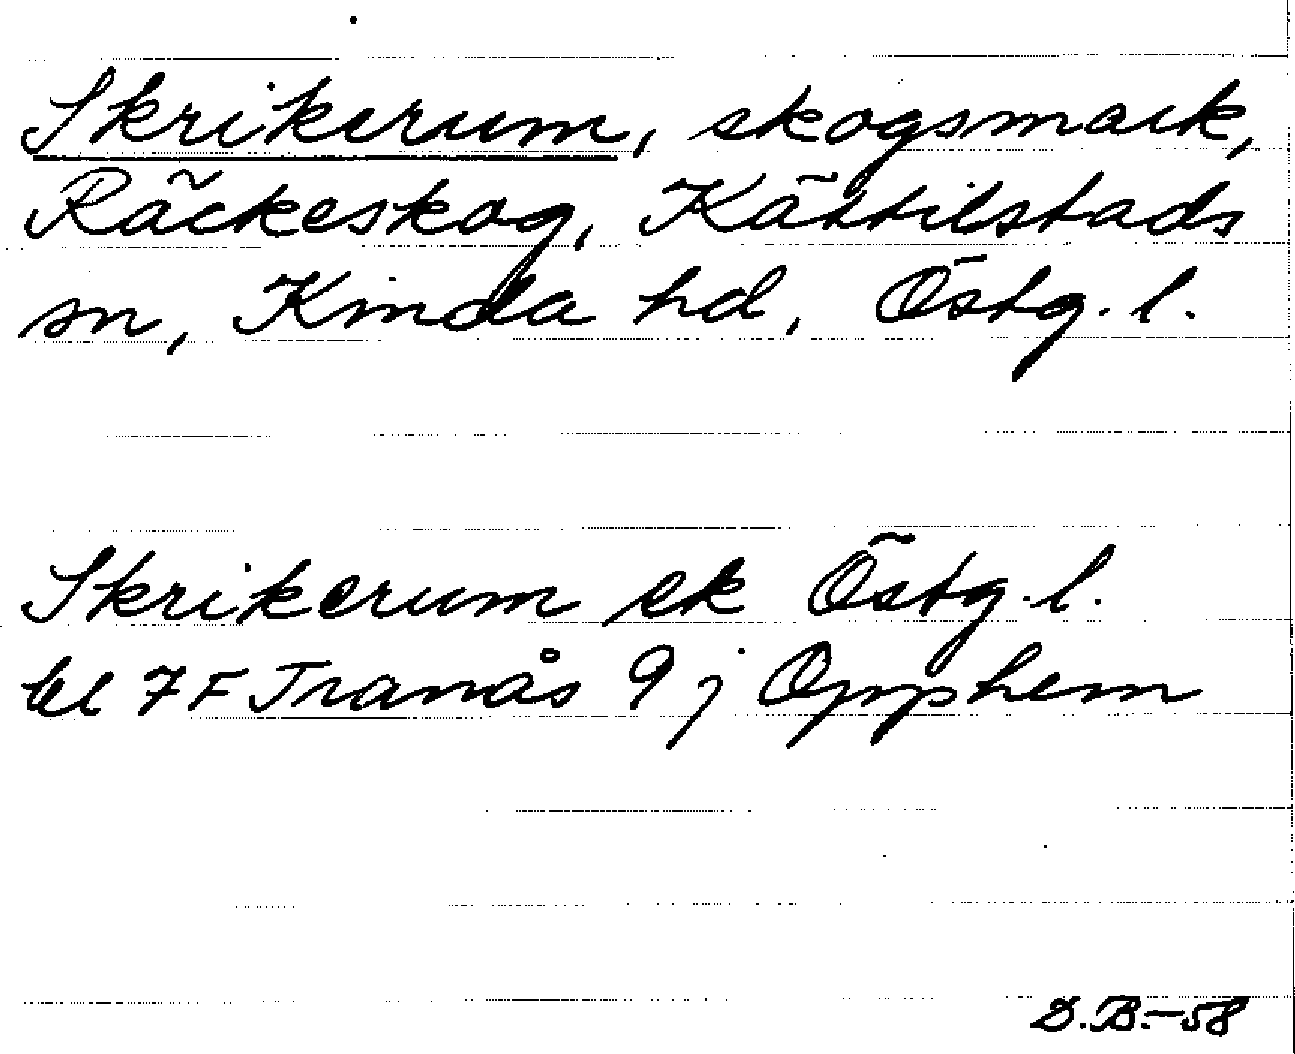 Skrikerum, skogsmark,
Räckeskog, Kättilstads
sn, Kinda hd, Östg. l.
Skrikerum ek Östg. l.
bl 7F Tranås 9 j Opphem
D.B.-58